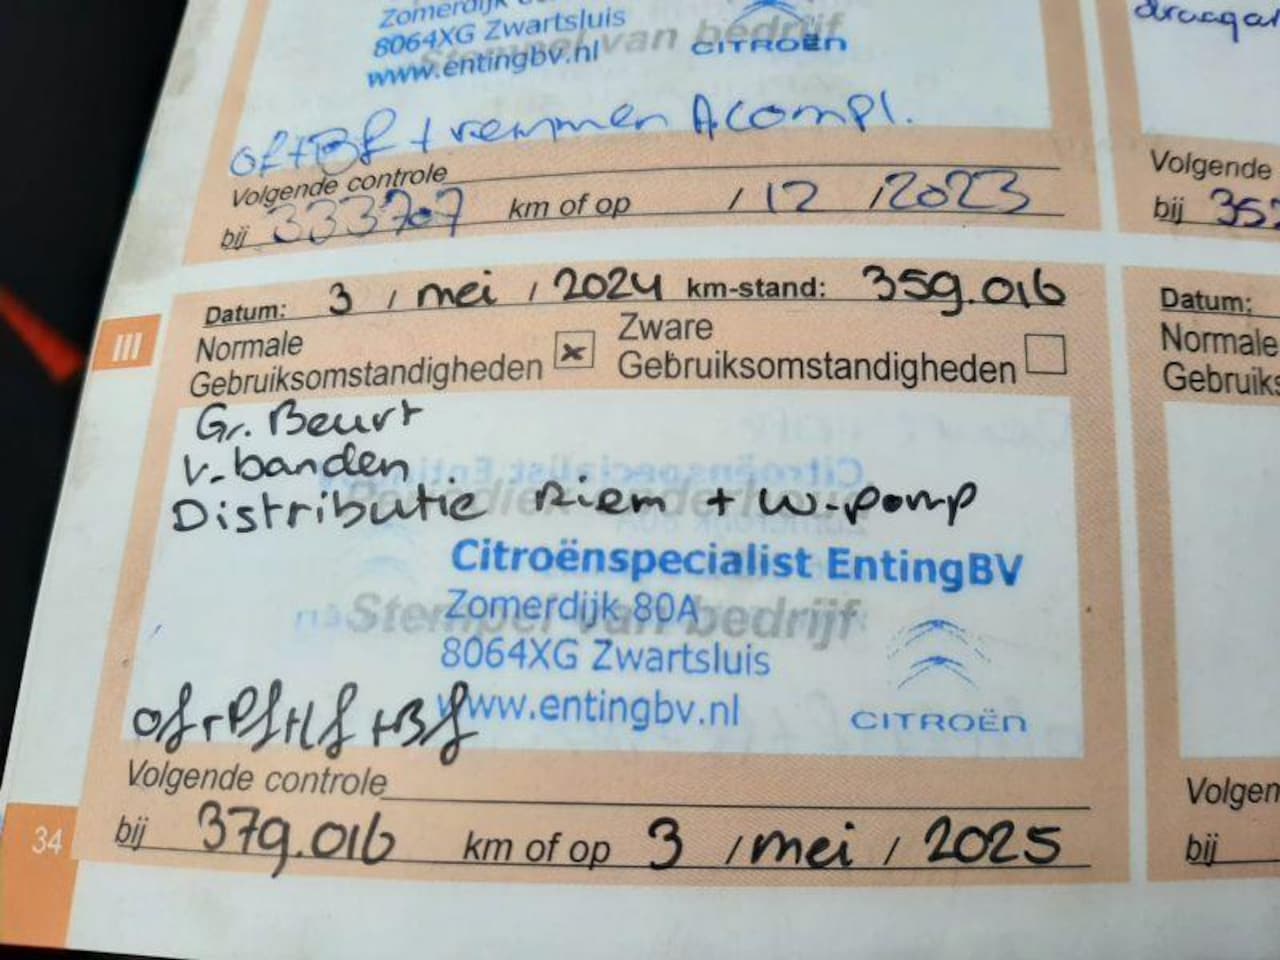 8064XG Zwartsluis
www.entingbv.nl
Stempel van bedrijf
CITROËN
of+Bf + remmen A compl.
Volgende controle
bij 333707 km of op / 12 /2023
Datum: 3 / mei / 2024 km-stand: 359.016
III
Normale
Gebruiksomstandigheden
Zware
Gebruiksomstandigheden
Gr. Beurt
v. banden
Distributie Riem + w-pomp
Citroënspecialist Enting BV
Zomerdijk 80A
Stempel van bedrijf
8064XG Zwartsluis
www.entingbv.nl
CITROËN
of+Pf+If+Bf
Volgende controle
bij 379.016 km of op 3 / mei / 2025
34
Volgende
bij
Datum:
Normale
bij